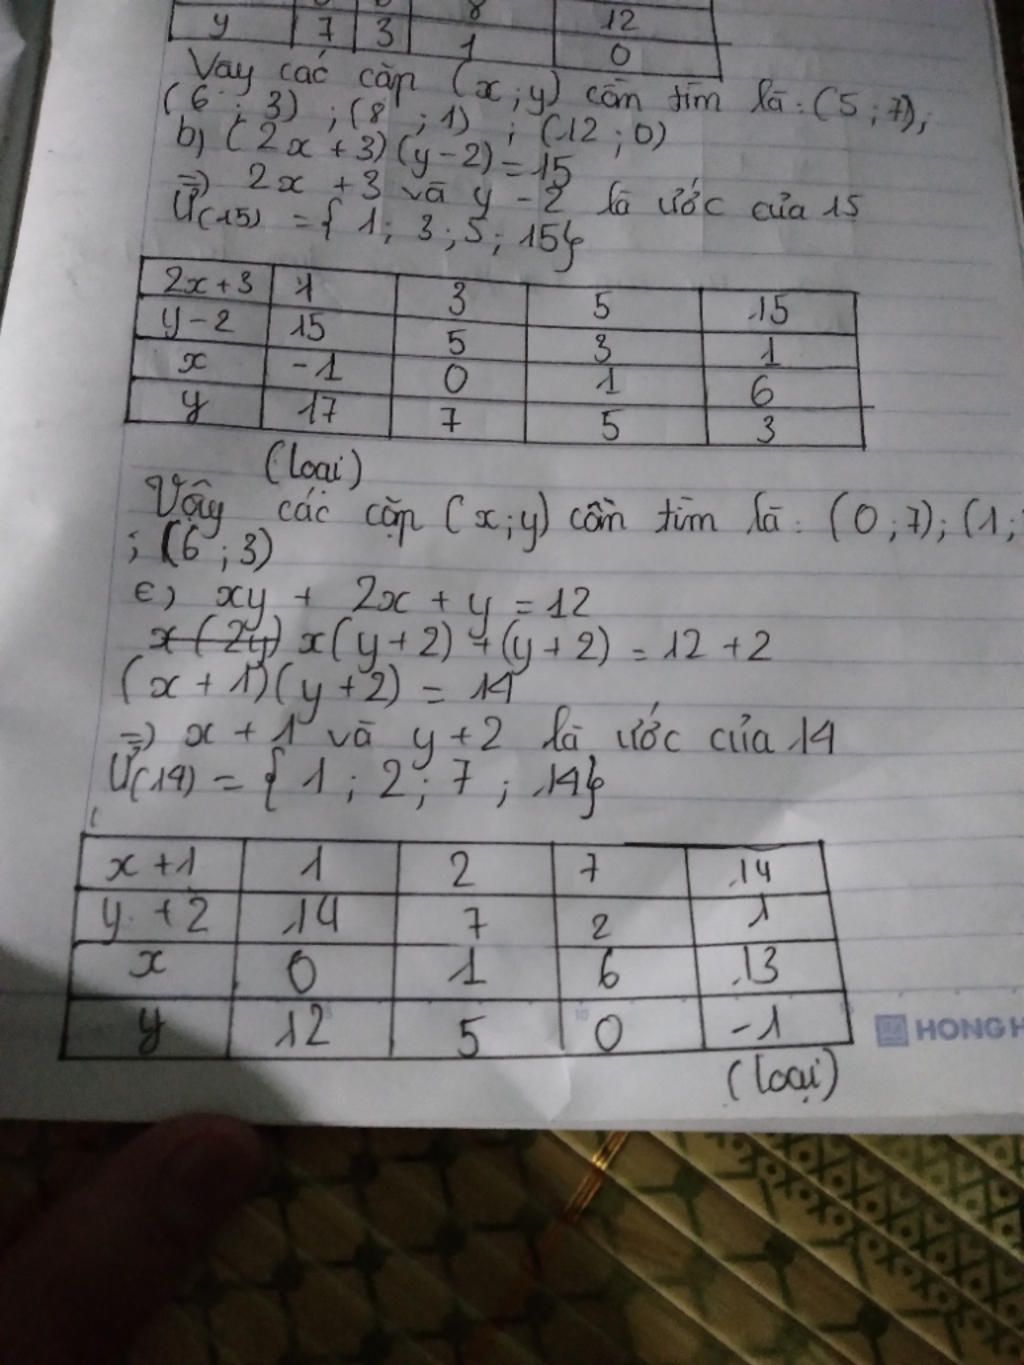 8 12
y 7 3 1 0
Vay các cặp (x;y) cần tìm là: (5;7);
(6;3); (8;1); (12;0)
b) (2x+3)(y-2)=15
=> 2x+3 và y-2 là ước của 15
Ư(15) = {1; 3; 5; 15}
2x+3 1 3 5 15
y-2 15 5 3 1
x -1 0 1 6
y 17 7 5 3
(loại)
Vậy các cặp (x;y) cần tìm là: (0;7); (1;
; (6;3)
c) xy + 2x + y = 12
x(y+2) + (y+2) = 12+2
(x+1)(y+2) = 14
=> x+1 và y+2 là ước của 14
Ư(14) = {1; 2; 7; 14}
x+1 1 2 7 14
y+2 14 7 2 1
x 0 1 6 13
y 12 5 0 -1
HONG H
(loại)